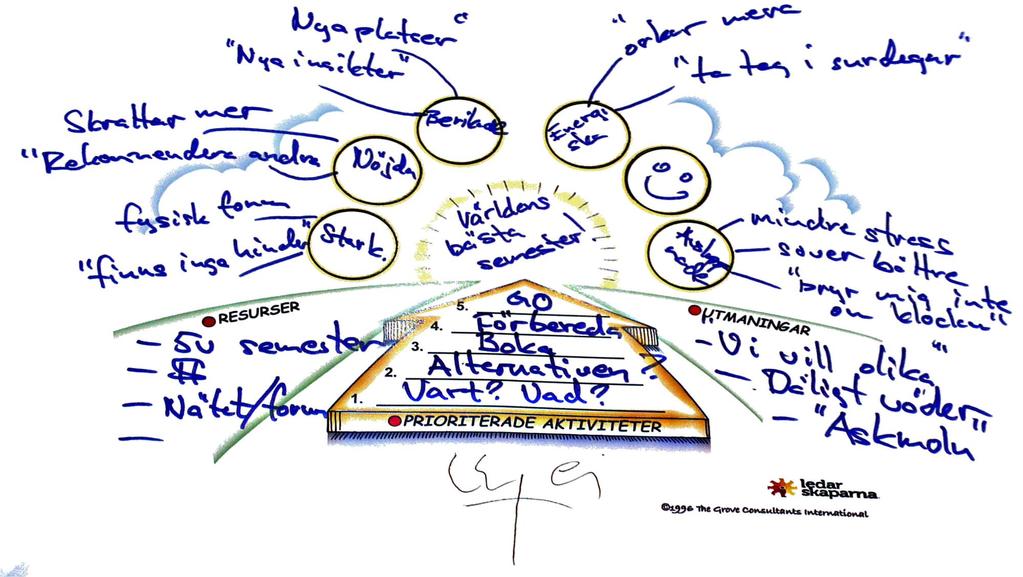 Nya platser"
"Nya insikter"
Berikade
"orkar mera
"ta tag i surdegar"
Energi
ska
Skrattar mer
"Rekommendera andra
Nöjda
fysisk form
"finns inga hinder"
Stark.
Världens
bästa
semester
mindre stress
sover bättre
"bryr mig inte
om klockan"
RESURSER
- 5v semester
- $$
- Nätet/forum
-
5. GO
4. Förbereda
3. Boka
2. Alternativen?
1. Vart? Vad?
PRIORITERADE AKTIVITETER
UTMANINGAR
- "Vi vill olika"
- Dåligt väder"
- "Askmoln
ledar
skaparna
©1996 The Grove Consultants International